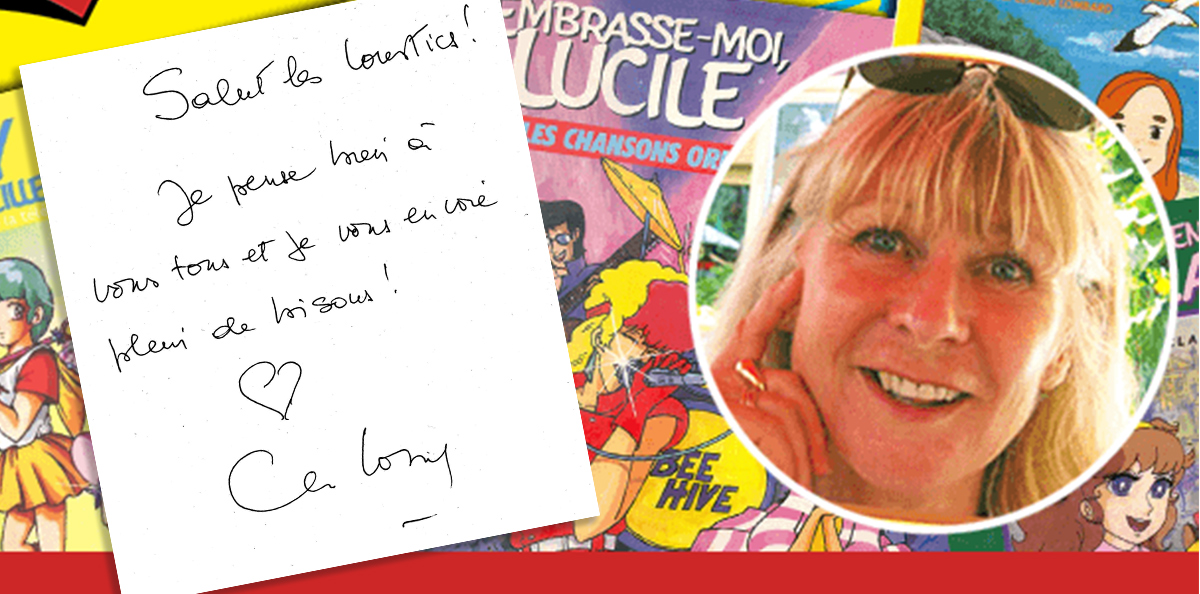 Salut les loustics!
Je pense bien à
vous tous et je vous envoie
plein de bisous!
EMBRASSE-MOI,
LUCILE
LES CHANSONS OR
BEE
HIVE